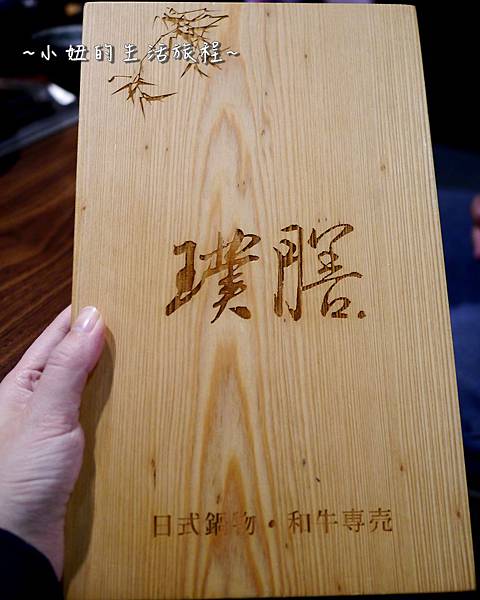 ~小妞的生活旅程~
璞膳
日式鍋物・和牛専売